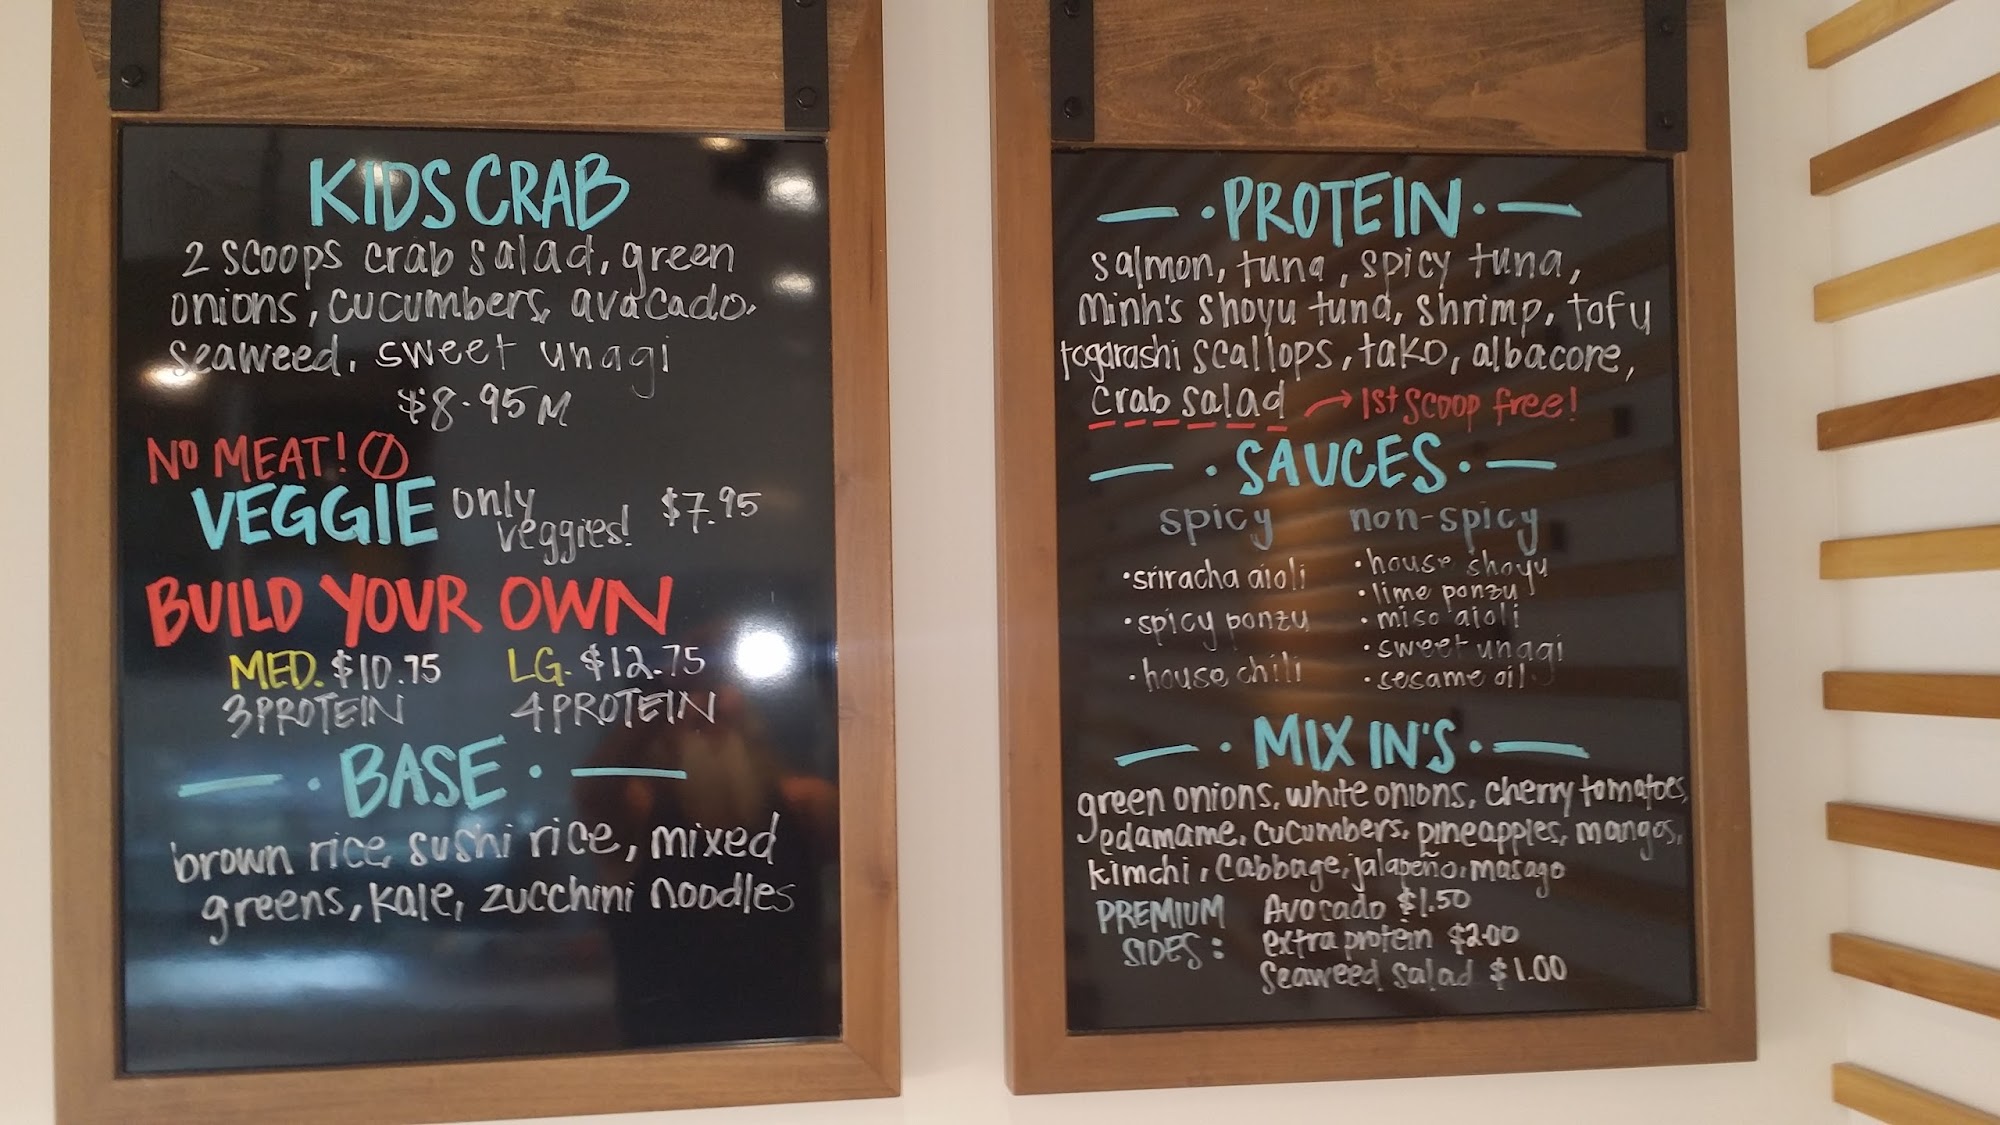 KIDS CRAB
2 scoops crab salad, green
onions, cucumbers, avocado,
seaweed, sweet unagi
$8.95 M
NO MEAT!
VEGGIE only veggies! $7.95
BUILD YOUR OWN
MED. $10.75 LG. $12.75
3 PROTEIN 4 PROTEIN
BASE
brown rice, sushi rice, mixed
greens, kale, zucchini noodles
PROTEIN
salmon, tuna, spicy tuna,
Minh's shoyu tuna, shrimp, tofu
togarashi scallops, tako, albacore,
crab salad → 1st scoop free!
SAUCES
spicy non-spicy
• sriracha aioli
• spicy ponzu
• house chili
• house shoyu
• lime ponzu
• miso aioli
• sweet unagi
• sesame oil
MIX IN'S
green onions, white onions, cherry tomatoes,
edamame, cucumbers, pineapples, mangos,
kimchi, cabbage, jalapeño, masago
PREMIUM SIDES: Avocado $1.50
extra protein $2.00
Seaweed salad $1.00